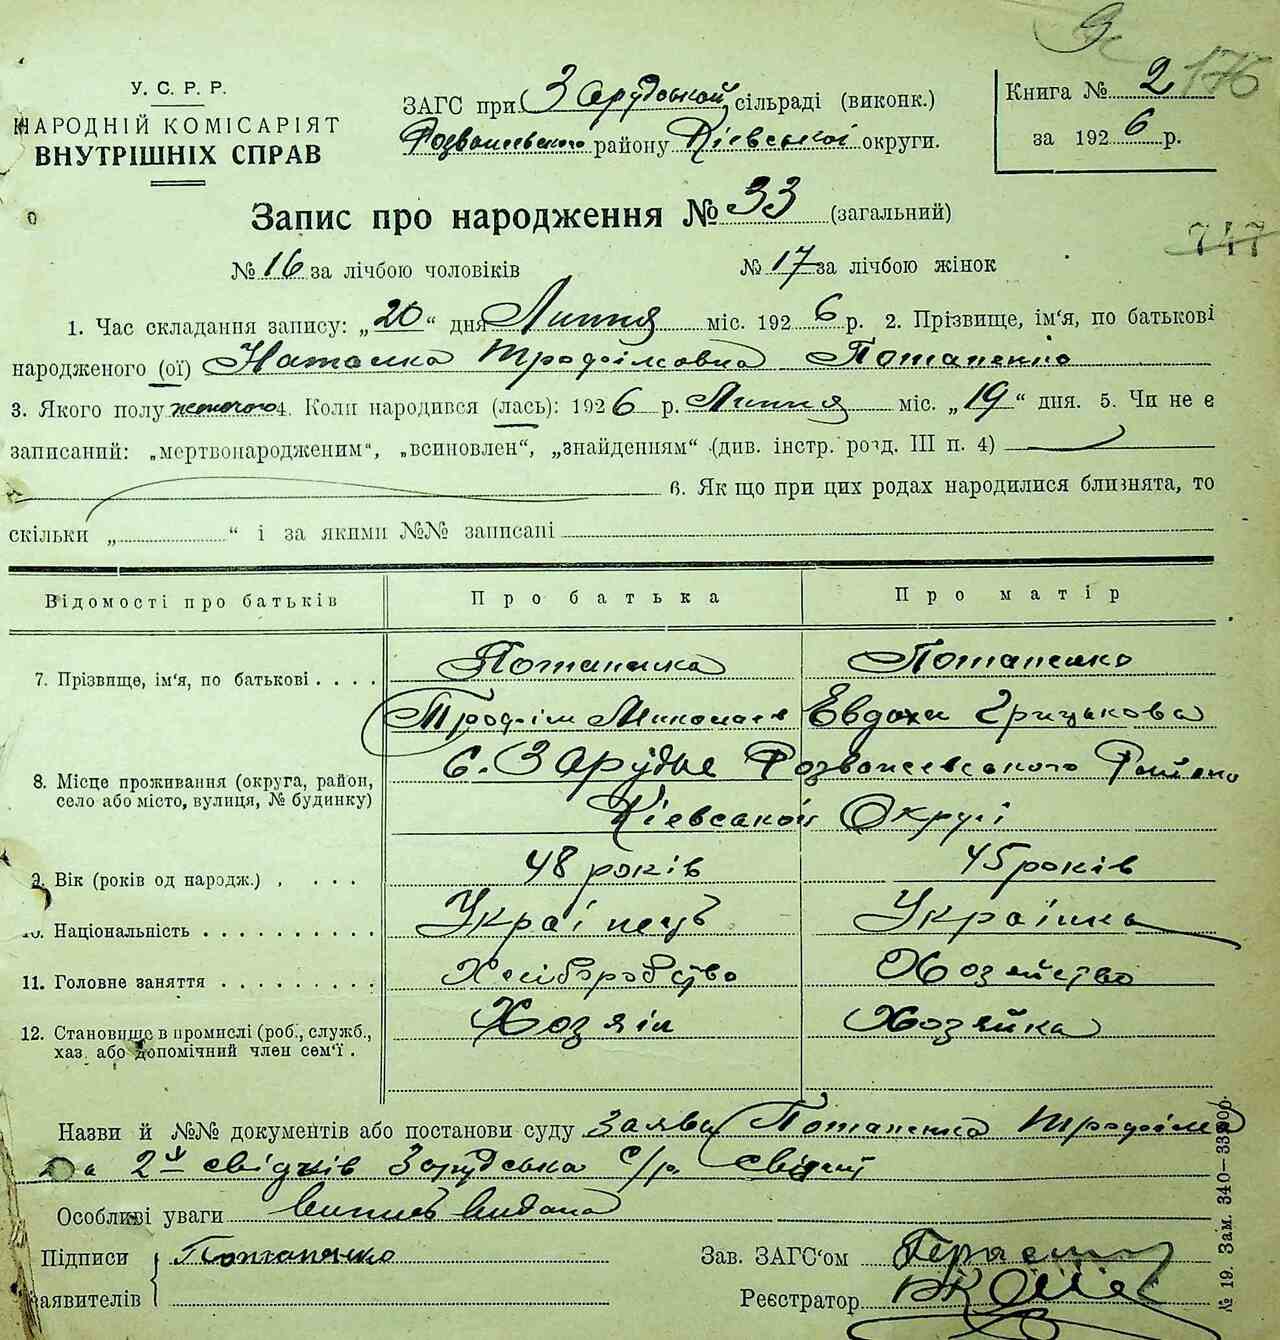 У. С. Р. Р.
НАРОДНІЙ КОМІСАРІЯТ
ВНУТРІШНІХ СПРАВ
ЗАГС при Зарудской сільраді (виконк.)
Розважевського району Кіевськоі округи.
Книга № 2
176
за 1926 р.
Запис про народження № 33 (загальний)
747
№ 16 за лічбою чоловіків № 17 за лічбою жінок
1. Час складання запису: „20“ дня Липня міс. 1926 р. 2. Прізвище, ім'я, по батькові
народженого (ої) Наталка Трофімовна Потапенко
3. Якого полу женочого 4. Коли народився (лась): 1926 р. Липня міс. „19“ дня. 5. Чи не є
записаний: „мертвонародженим“, „всиновлен“, „знайденням“ (див. інстр. розд. III п. 4)
6. Як що при цих родах народилися близнята, то
скільки „ “ і за якими №№ записані
Відомості про батьків Про батька Про матір
7. Прізвище, ім'я, по батькові . . . . Потапенка Потапенко
Трофім Миколаев Евдохи Грицькова
8. Місце проживання (округа, район,
село або місто, вулиця, № будинку)
с. Зарудье Розважевського Району
Кіевськой Округі
9. Вік (років од народж.) . . . . 48 років 45 років
10. Національність . . . . . . . . . . Украінець Українка
11. Головне заняття . . . . . . . . . Хлібробство Хозяйство
12. Становище в промислі (роб., служб.,
хаз. або допомічний член сем'ї .
Хозяін Хозяйка
Назви й №№ документів або постанови суду Заява Потапенка Трофіма
та 2х свідків Зарудська с/р.
Особливі уваги Випись видана
Підписи
заявителів
Потапянко
Зав. ЗАГС'ом
Реєстратор
№ 19. Зам. 340—33200.